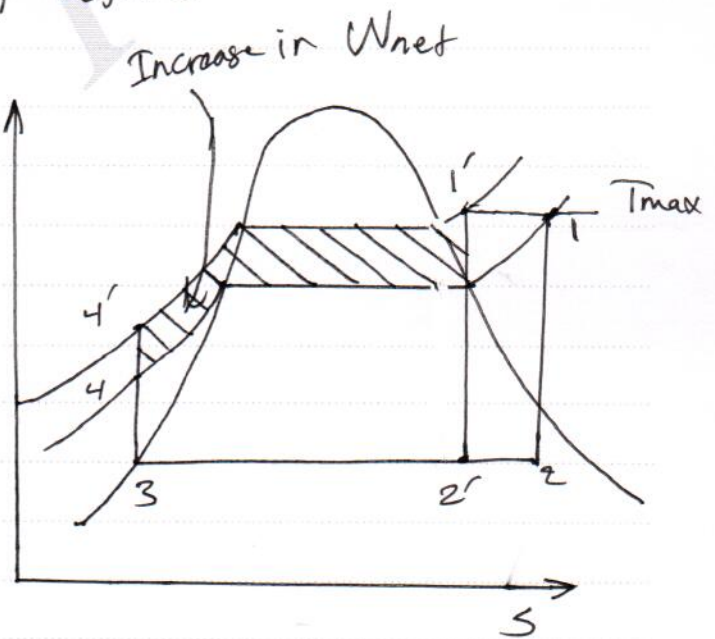 Increase in Wnet
1'
Tmax
1
4'
4
3
2'
2
S